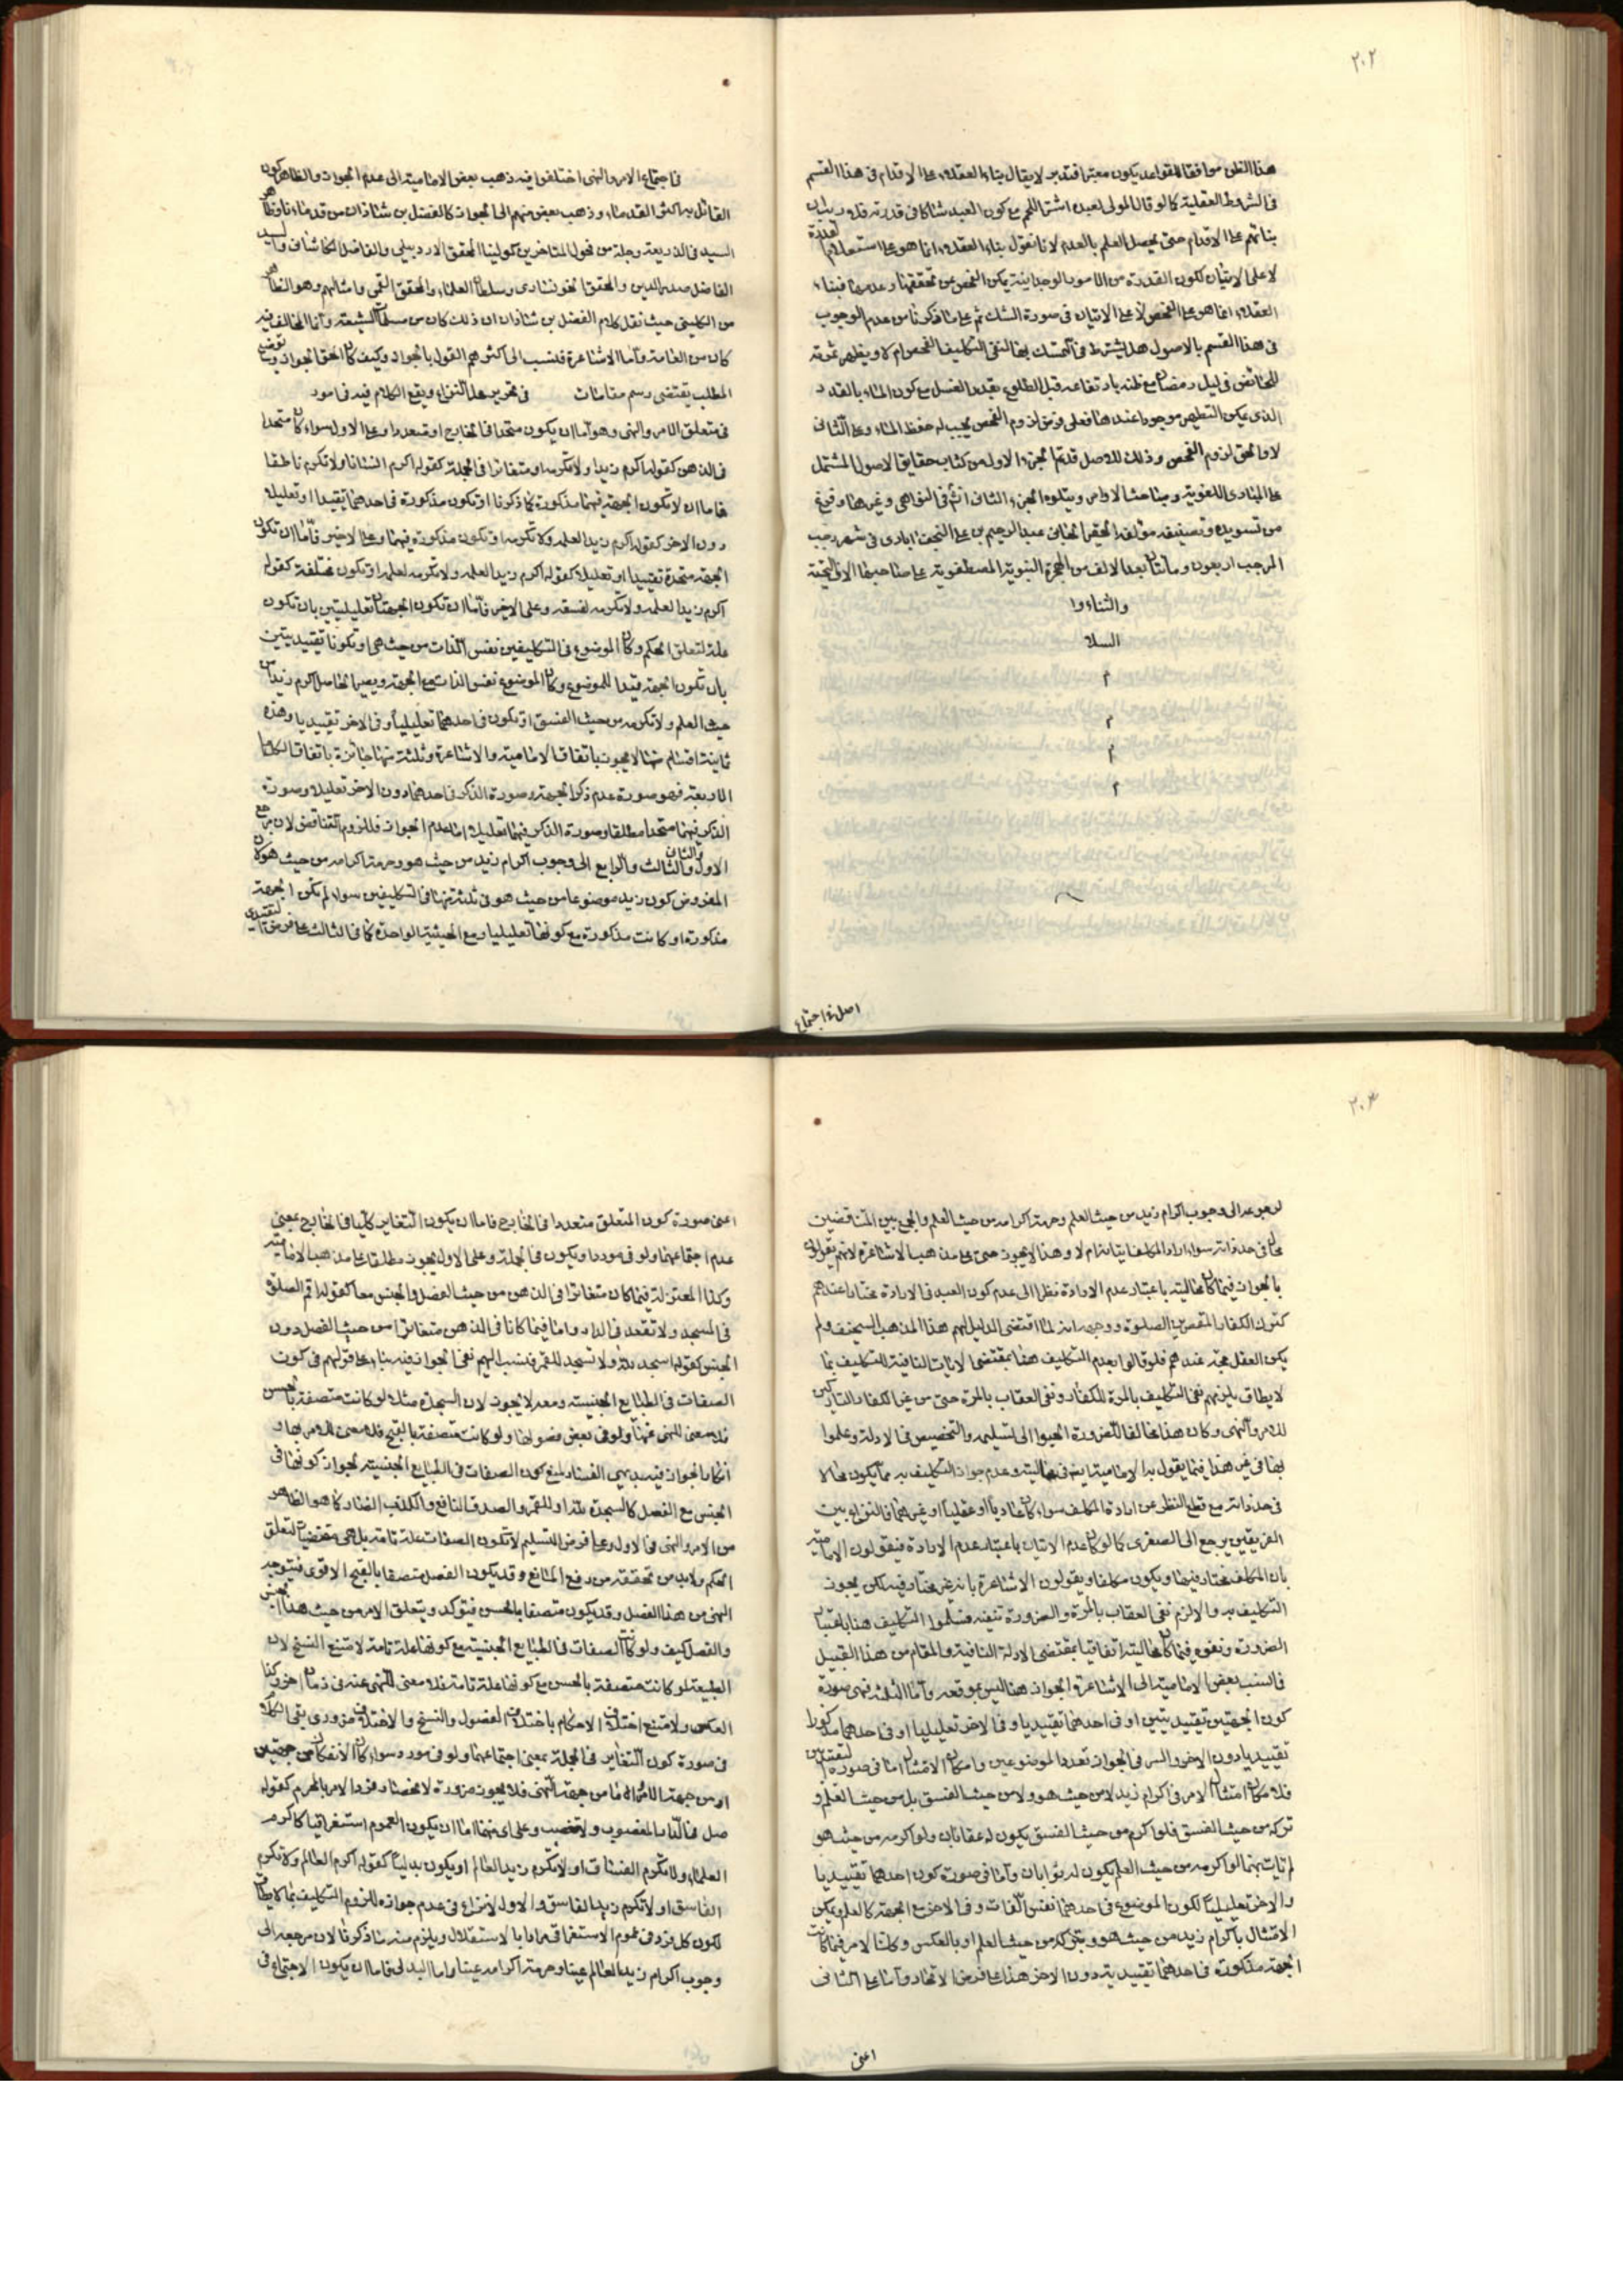 ٢٠٢
هذا الظن موافقا للقواعد يكون معتبرا فتدبر لا يقال بناء العقلاء على الاقدام فى هذا القسم
فى الشروط العقلية كما لو قال المولى لعبده اشتر اللحم مع كون العبد شاكا فى قدرته فلا ريب ان
بنائهم على الاقدام حتى يحصل العلم بالعدم لانا نقول بناء العقلاء انما هو على استعلام القدرة
لا على الاتيان لكون القدرة من الامور الوجدانية يمكن الفحص عن تحققها وعدمها فبناء
العقلاء انما هو على الفحص لا على الاتيان فى صورة الشك ثم على ما ذكرنا من عدم الوجوب
فى هذا القسم بالاصول هل يشترط فى التمسك بها لنفى التكليف الفحص ام لا ويظهر ثمرته
للحائض فى ليل رمضان مع ظنه بارتفاعه قبل الطلوع بقدر الغسل مع كون الماء بالقدر
الذى يمكن التطهير موجودا عندها فعلى فرض لزوم الفحص يجب له حفظ الماء وعلى الثانى
لا والحق لزوم الفحص وذلك للاصل قد تم الجزء الاول من كتاب حقايق الاصول المشتمل
على المبادى اللغوية ومباحث الاوامر ويتلوه الجزء الثانى انش فى النواهى وغيرها وقع فرغ
من تسويده وتصنيفه مؤلفه الحقير الجانى عبد الرحيم بن على النجف ابادى فى شهر رجب
المرجب اربعون ومائتان بعد الالف من الهجرة النبوية المصطفوية على صاحبها الاف التحية
والثناء وا
السلا
م
م
م
م
اصل فى اجتماع
فى اجتماع الامر والنهى اختلفوا فيه ذهب بعض الامامية الى عدم الجواز والظاهر كون
القائل به اكثر القدماء وذهب بعض منهم الى الجواز كالفضل بن شاذان من قدمائنا وظاهر
السيد فى الذريعة وجلة من فحول المتاخرين كمولينا المحقق الاردبيلى والفاضل الكاشانى والسيد
الفاضل صدر الدين والمحقق الخونسارى وسلطان العلماء والمحقق القمى وامثالهم وهو الظاهر
من الكلينى حيث نقل كلام الفضل بن شاذان ان ذلك كان من مسلمات الشيعة وانما المخالف فيه
كان من العامة واما الاشاعرة فنسب الى اكثرهم القول بالجواز وكيف كان الحق الجواز وتوضيح
المطلب يقتضى رسم مقامات فى تحرير محل النزاع ويقع الكلام فيه فى امور
فى متعلق الامر والنهى وهو اما ان يكون متحدا فى الخارج او متعددا وعلى الاول سواء كان متحدا
فى الذهن كقوله اكرم زيدا ولا تكرمه او متغايرا فى الجملة كقوله اكرم انسانا ولا تكرم ناطقا
فاما ان لا تكون الجهة فيهما مذكورة كما ذكرنا او تكون مذكورة فى احدهما تقييدا او تعليلا
دون الاخر كقوله اكرم زيدا لعلمه ولا تكرمه او تكون مذكورة فيهما وعلى الاخير فاما ان تكون
الجهة متحدة تقييدا او تعليلا كقوله اكرم زيدا لعلمه ولا تكرمه لعلمه او تكون مختلفة كقوله
اكرم زيدا لعلمه ولا تكرمه لفسقه وعلى الاخير فاما ان تكون الجهتان تعليليتين بان تكون
علة لتعلق الحكم وكان الموضوع فى التكليفين نفس الذات من حيث هى او تكونا تقييديتين
بان تكون الجهة قيدا للموضوع وكان الموضوع نفس الذات مع الجهة ويصير الحاصل اكرم زيدا من
حيث العلم ولا تكرمه من حيث الفسق او تكون فى احدهما تعليليا وفى الاخر تقييديا وهذه
ثمانية اقسام منها لا يجوز باتفاق الامامية والاشاعرة وثلثة منها جائزة باتفاق الكل واما
الاربعة فهو صورة عدم ذكر الجهة وصورة الذكر فى احدهما دون الاخر تعليلا وصورة
الذكر فيهما متحدا مطلقا وصورة الذكر فيهما تعليلا اما عدم الجواز فللزوم التناقض لان مرجع
الاول والثانى والثالث والرابع الى وجوب اكرام زيد من حيث هو وحرمة اكرامه من حيث هو لان
المفروض كون زيد موضوعا من حيث هو فى ثلثة منها فى التكليفين سواء لم تكن الجهة
مذكورة او كانت مذكورة مع كونها تعليليا ومع الحيثية الواحدة كما فى الثالث على فرض التقييدى
٢٠٣
لرجوعه الى وجوب اكرام زيد من حيث العلم وحرمة اكرامه من حيث العلم والجمع بين المتناقضين
محال فى حد ذاته سواء اراد المكلف اتيانه ام لا وهذا لا يجوز حتى على مذهب الاشاعرة لانهم يقولون
بالجواز فيما كان محاليته باعتبار عدم الارادة نظرا الى عدم كون العبد فى الارادة مختارا عندهم
كترك الكفار المقصرين الصلوة ووجهه انه لما اقتضى الدليل لهم هذا المذهب السخيف ولم
يكن العقل حجة عندهم فلو قالوا بعدم التكليف هنا بمقتضى الايات النافية للتكليف بما
لا يطاق يلزمهم نفى التكليف بالمرة للكفار ونفى العقاب بالمرة حتى من غير الكفار والتاركين
للامر والنهى وكان هذا مخالفا للضرورة الجيوا الى تسليمه والتخصيص فى الادلة وعملوا
بها فى غير هذا فيما يقول به الامامية ايضا فى محاليته وعدم جواز التكليف به مما يكون محالا
فى حد ذاته مع قطع النظر عن ارادة المكلف سواء كان عاديا او عقليا او غيرهما فالنزاع بين
الفريقين يرجع الى الصغرى كما لو كان عدم الاتيان باعتبار عدم الارادة فيقولون الامامية
بان المكلف مختار فيها ويكون مكلفا ويقولون الاشاعرة بانه غير مختار فيه لكن يجوز
التكليف به والا لزم نفى العقاب بالمرة والضرورة تنفيه فسلموا التكليف هنا باعتبار
الضرورة ونفوه فيما كان محاليته اتفاقيا بمقتضى الادلة النافية والمقام من هذا القبيل
فما نسب بعض الامامية الى الاشاعرة الجواز هنا ليس بموقعه واما الثلثة فهى صورة
كون الجهتين تقييديتين او فى احدهما تقييديا وفى الاخر تعليليا او فى احدهما مذكورا
تقييديا دون الاخر والسر فى الجواز تعدد الموضوعين وامكان الامتثال اما فى صورة التقييديتين
فلامكان امتثال الامر فى اكرام زيد لا من حيث هو ولا من حيث الفسق بل من حيث العلم و
تركه من حيث الفسق فلو اكرم من حيث الفسق يكون له عقابان ولو اكرمه من حيث هو
لم يات بهما لو اكرمه من حيث العلم يكون له ثوابان واما فى صورة كون احدهما تقييديا
والاخر تعليليا لكون الموضوع فى احدهما نفس الذات وفى الاخر مع الجهة كالعلم ويمكن
الامتثال باكرام زيد من حيث هو وبتركه من حيث العلم او بالعكس وكذا الامر فيما كانت
الجهة مذكورة فى احدهما تقييدية دون الاخر هذا على فرض الاتحاد واما على الثانى
اعنى
اعنى صورة كون المتعلق متعددا فى الخارج فاما ان يكون التغاير كليا فى الخارج بمعنى
عدم اجتماعهما ولو فى مورد او يكون فى الجملة وعلى الاول يجوز مطلقا على مذهب الامامية
وكذا المعتزلة فيما كان متغايرا فى الذهن من حيث الفصل والجنس معا كقوله اقم الصلوة
فى المسجد ولا تقعد فى الدار واما فيما كانا فى الذهن متغايرا من حيث الفصل دون
الجنس كقوله اسجد لله ولا تسجد للقمر فنسب اليهم نفى الجواز فيه بناء على قولهم فى كون
الصفات فى الطبايع الجنسية ومعه لا يجوز لان السجدة مثلا لو كانت متصفة بالحسن
فلا معنى للنهى عنها ولو فى بعض فصولها ولو كانت متصفة بالقبح فلا معنى للامر بها و
انكار الجواز فيه بديهى الفساد لمنع كون الصفات فى الطبايع الجنسية لجواز كونها فى
الجنس مع الفصل كالسجدة لله او للقمر والصدق النافع والكذب الضار كما هو الظاهر
من الامر والنهى فى الاول وعلى فرض التسليم لا تكون الصفات علة تامة بل هى مقتضيات لتعلق
الحكم ولابد من تحققه من رفع المانع وقد يكون الفصل متصفا بالقبح الاقوى فيتوجه
النهى من هذا الفصل وقد يكون متصفا بالحسن فيتوكد ويتعلق الامر من حيث هذا الجنس
والفصل كيف ولو كانت الصفات فى الطبايع الجنسية مع كونها علة تامة لامتنع النسخ لان
الطبيعة لو كانت متصفة بالحسن مع كونها علة تامة فلا معنى للنهى عنه فى زمان اخر وكذا
العكس ولامتنع اختلاف الاحكام باختلاف الفصول والنسخ والاختلاف ضرورى بقى الكلام
فى صورة كون التغاير فى الجملة بمعنى اجتماعهما ولو فى مورد وسواء كان الانفكاك من جهتين
او من جهة الامر اما من جهة النهى فلا يجوز ضرورة لانحصار فرد الامر بالمحرم كقوله
صل فى الدار المغصوب ولا تغصب وعلى اى منهما اما ان يكون العموم استغراقيا كاكرم
العلماء ولا تكرم الفساق او لا تكرم زيدا العالم او يكون بدليا كقوله اكرم العالم ولا تكرم
الفاسق او لا تكرم زيدا الفاسق والاول لا نزاع فى عدم جوازه للزوم التكليف بما لا يطاق
لكون كل فرد فى عموم الاستغراقى مرادا بالاستقلال ويلزم منه ما ذكرنا لان مرجعه الى
وجوب اكرام زيد العالم عينا وحرمة اكرامه عينا واما البدلى فاما ان يكون الاجتماع فى